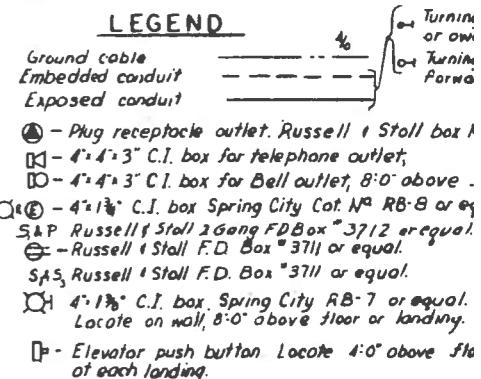 LEGEND
4/0
Turnin
or ow
Ground cable
Embedded conduit
Turnin
forwa
Exposed conduit
- Plug receptacle outlet. Russell & Stoll box
- 4"x4"x3" C.I. box for telephone outlet,
- 4"x4"x3" C.I. box for Bell outlet, 8'-0" above
& E - 4"x1⅜" C.I. box Spring City Cat. Nº RB-8 or eq
S, & P Russell & Stoll 2 Gang FD Box #3712 or equal.
- Russell & Stoll F.D. Box #3711 or equal.
S, & S, Russell & Stoll F.D. Box #3711 or equal.
4"x1⅜" C.I. box, Spring City RB-7 or equal.
Locate on wall, 8'-0" above floor or landing.
P - Elevator push button Locate 4'-0" above flo
at each landing.